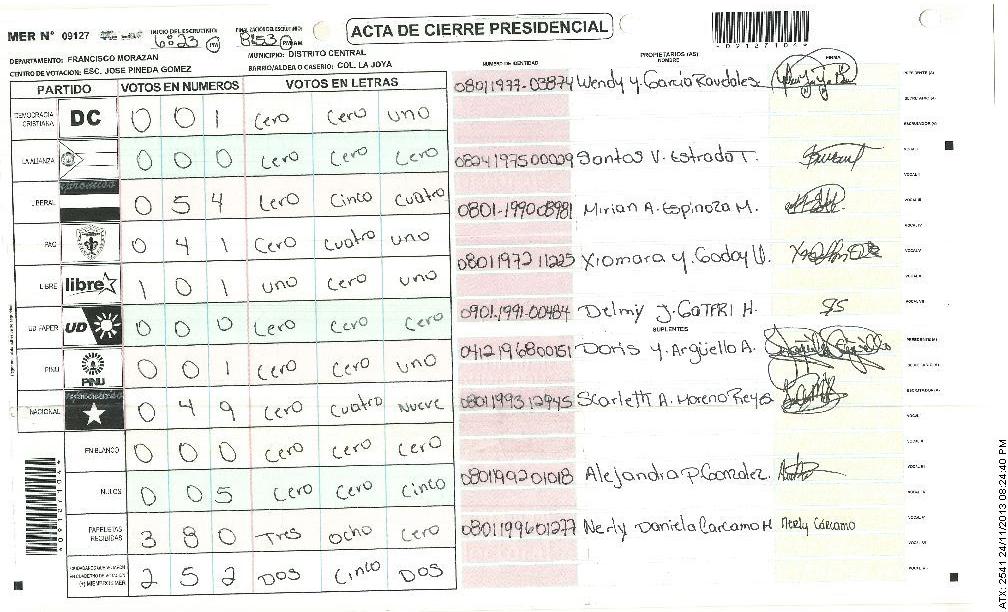 ACTA DE CIERRE PRESIDENCIAL
MER Nº 09127
INICIO DEL ESCRUTINIO: 6:23 PM
FINALIZACION DEL ESCRUTINIO: 8:53 PM
DEPARTAMENTO: FRANCISCO MORAZAN MUNICIPIO: DISTRITO CENTRAL
CENTRO DE VOTACION: ESC. JOSE PINEDA GOMEZ BARRIO/ALDEA O CASERIO: COL. LA JOYA
PARTIDO VOTOS EN NUMEROS VOTOS EN LETRAS
DEMOCRACIA CRISTIANA DC 0 0 1 Cero Cero uno
LA ALIANZA 0 0 0 Cero Cero Cero
LIBERAL 0 5 4 Cero Cinco Cuatro
PAC 0 4 1 Cero Cuatro uno
LIBRE libre 1 0 1 uno Cero uno
UD FAPER UD 0 0 0 Cero Cero Cero
PINU PINU 0 0 1 Cero Cero uno
NACIONAL 0 4 9 Cero Cuatro Nueve
EN BLANCO 0 0 0 Cero Cero Cero
NULOS 0 0 5 Cero Cero Cinco
PAPELETAS RECIBIDAS 3 8 0 Tres ocho Cero
2 5 2 DOS Cinco DOS
NUMERO DE IDENTIDAD PROPIETARIOS (AS) NOMBRE FIRMA
08011977-03874 Wendy y. Garcia Raudales
0824197500029 Santos V. Estrada T.
0801-199008981 Mirian A. Espinoza M.
0801197211225 Xiomara y. Godoy V.
0901-1991-00484 Delmy J. H.
SUPLENTES
0412196800151 Doris y. Argüello A.
0801199312945 Scarlett A. Moreno Reyes
0801199201018 Alejandra P. Gonzalez
0801199601277 Nerly Daniela Carcamo M Nerly Cárcamo
091271044
ATX: 2541 24/11/2013 08:24:40 PM